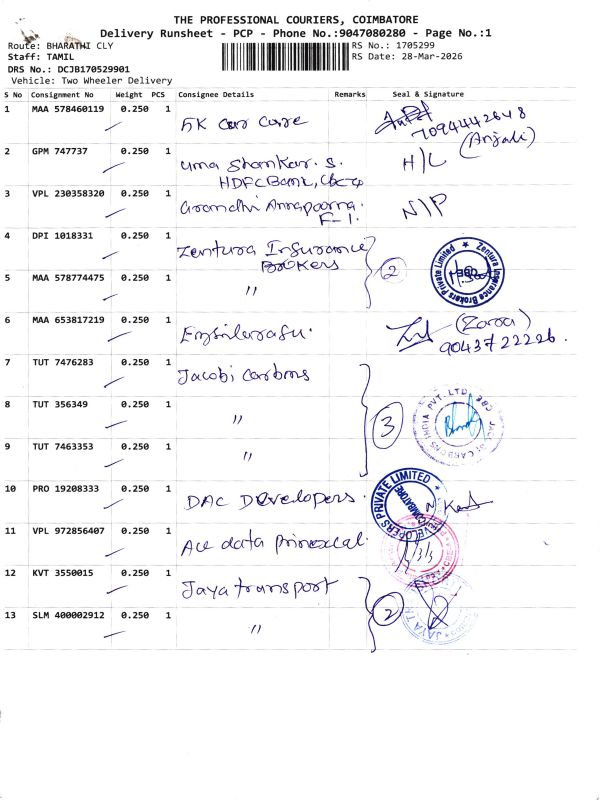 THE PROFESSIONAL COURIERS, COIMBATORE
Delivery Runsheet - PCP - Phone No.:9047080280 - Page No.:1
Route: BHARATHI CLY
RS No.: 1705299
Staff: TAMIL
RS Date: 28-Mar-2026
DRS No.: DCJB170529901
Vehicle: Two Wheeler Delivery
S No Consignment No Weight PCS Consignee Details Remarks Seal & Signature
1 MAA 578460119 0.250 1 5K Car Care 7094442648
(Anjali)
2 GPM 747737 0.250 1 Uma Shankar. S. H/L
HDFC Bank,
3 VPL 230358320 0.250 1 Annapoorna. N/P
F-1.
4 DPI 1018331 0.250 1 Zentura Insurance
Brokers 2
Zentura Insurance Brokers Private Limited
5 MAA 578774475 0.250 1 "
6 MAA 653817219 0.250 1 Ezhilarasu. (Zara)
9043722226.
7 TUT 7476283 0.250 1 Jacobi Carbons
8 TUT 356349 0.250 1 " 3
JACOBI CARBONS INDIA PVT. LTD. CBE
9 TUT 7463353 0.250 1 "
10 PRO 19208333 0.250 1 DAC Developers.
DEVELOPERS PRIVATE LIMITED COIMBATORE
11 VPL 972856407 0.250 1 Ace data
12 KVT 3550015 0.250 1 Jaya transport
13 SLM 400002912 0.250 1 " 2